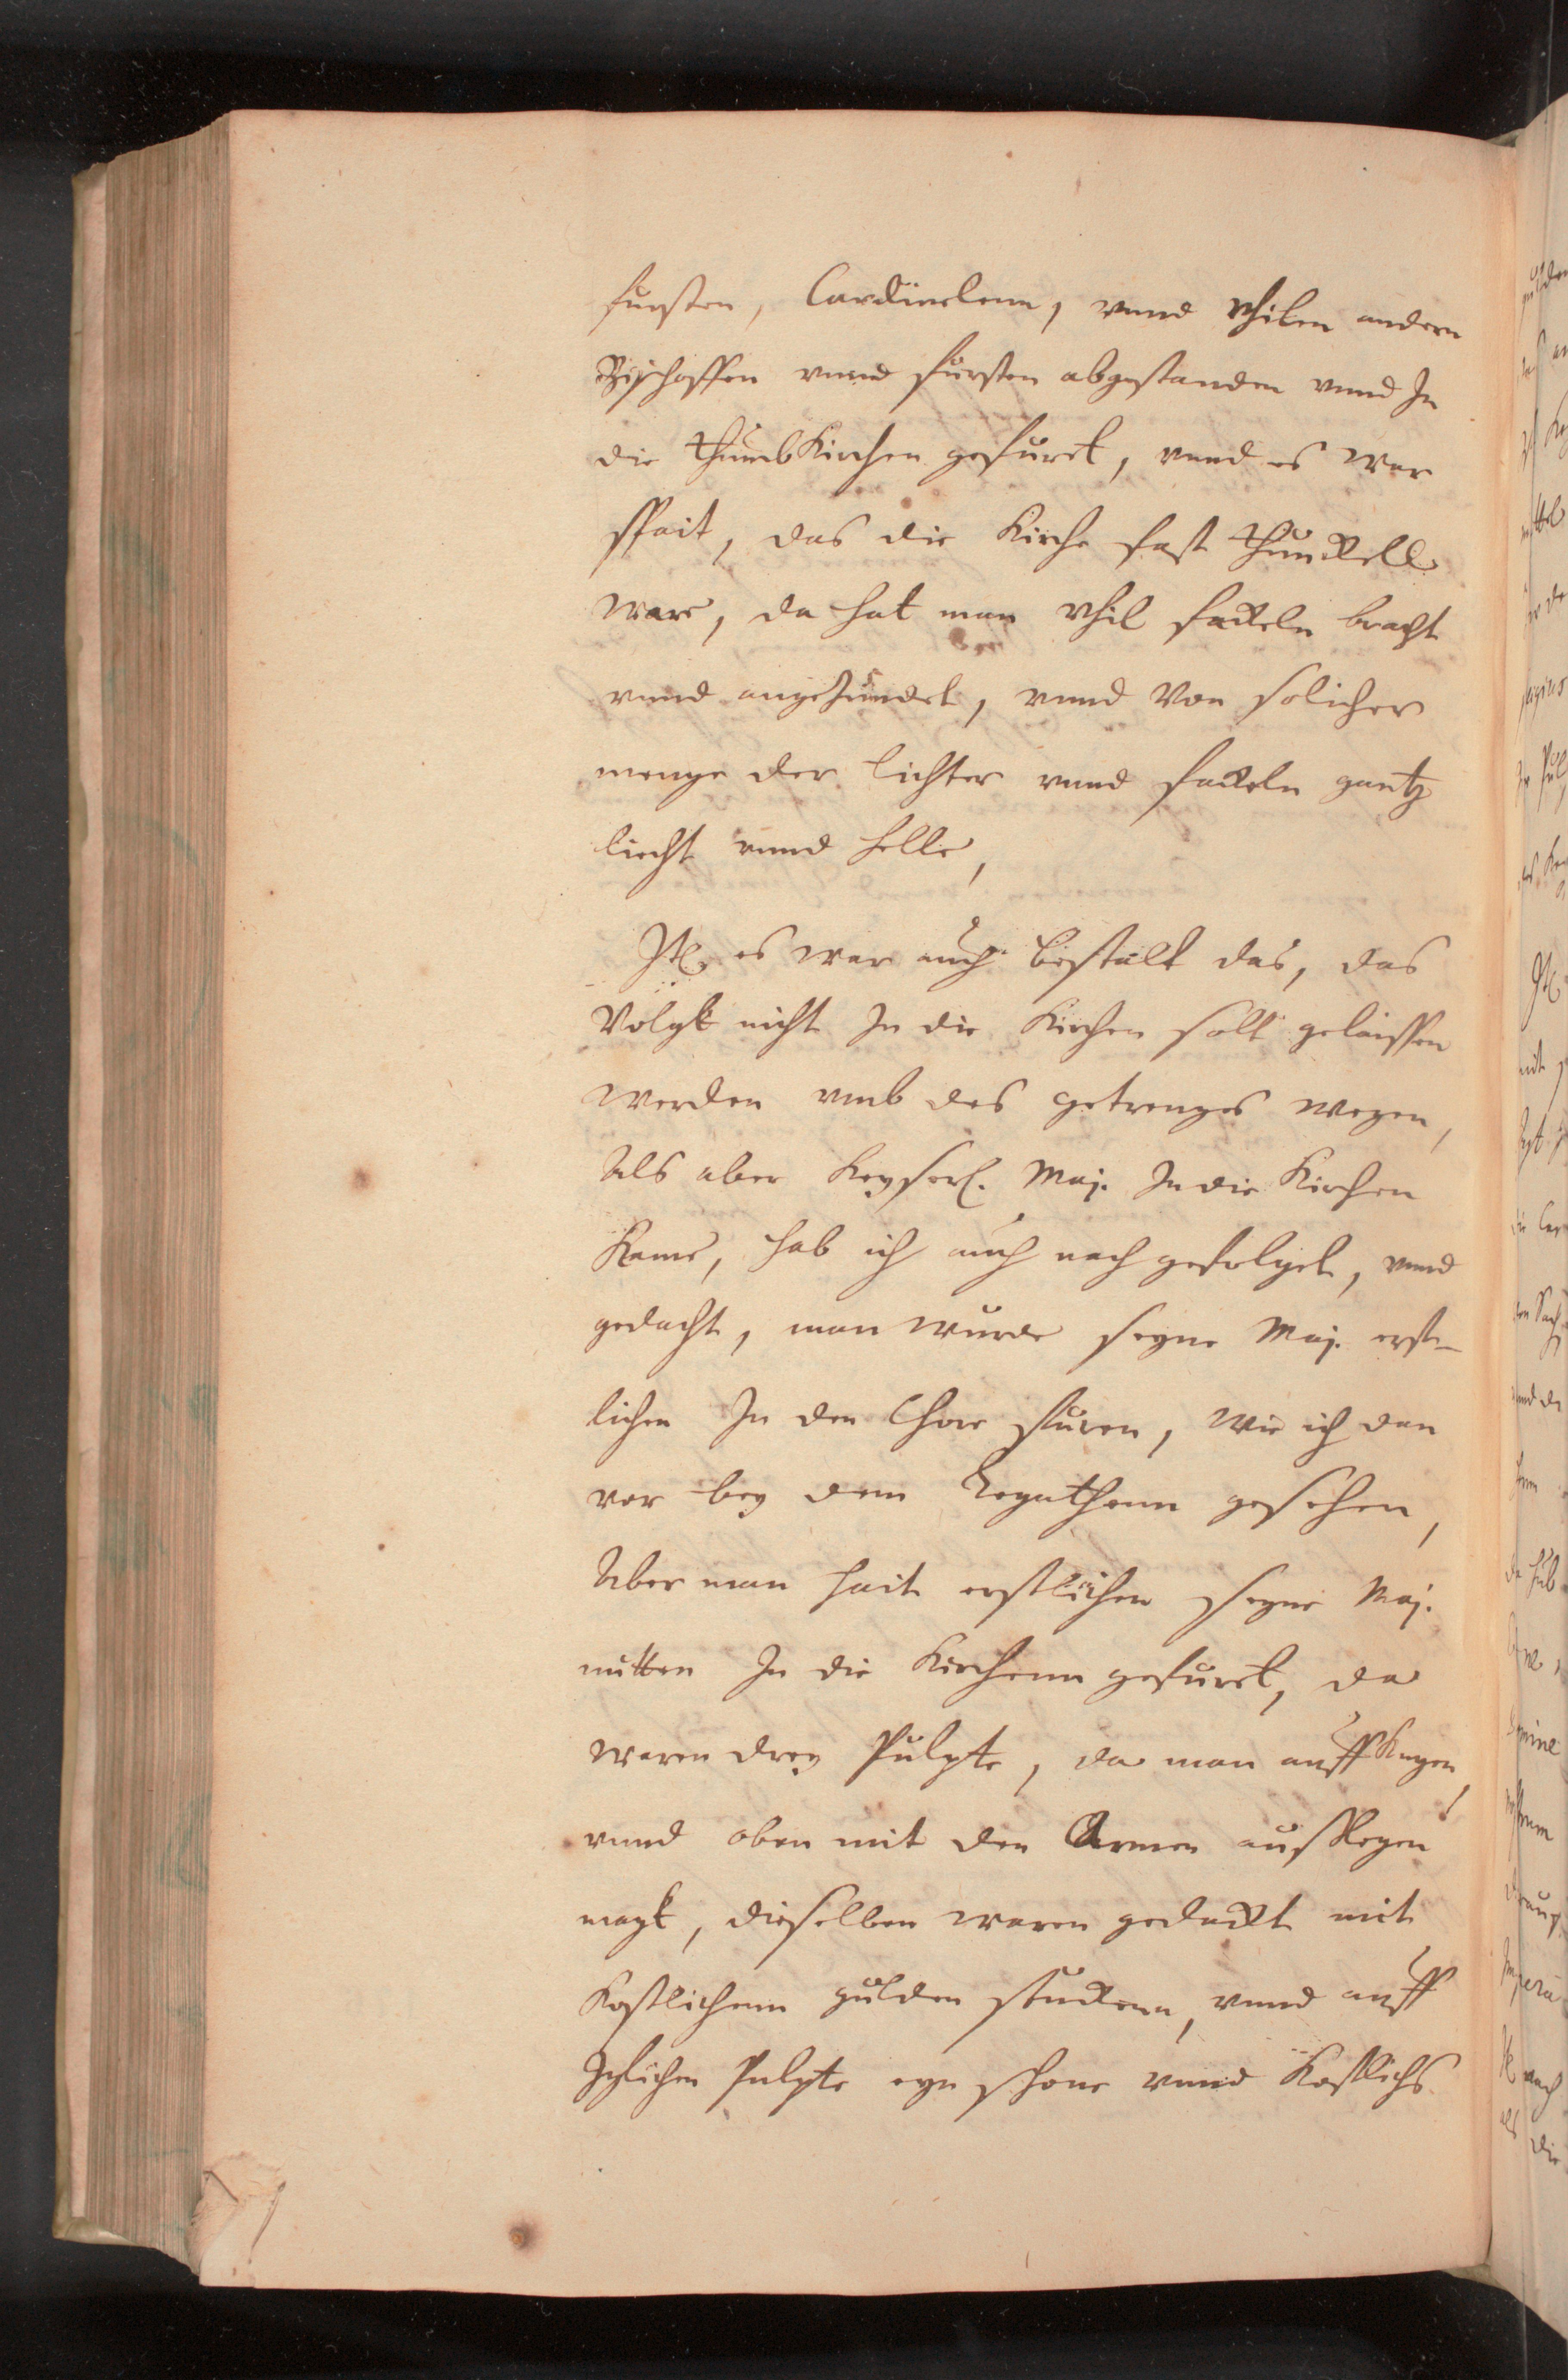 fursten, Cardinelenn, vnnd vhilen andern
Bischoffen vnnd fursten abgestanden vnnd In
die thumbKirchen gefuret, vnnd es war
spait, das die Kirche fast thunckell
ware, da hat man vhil fackeln bracht
vnnd angezundet, vnnd von solicher
menge der lichter vnnd fackeln gantz
liecht vnnd helle,
It. es war auch bestalt das, das
Volgk nicht In die Kirchen solt gelaissen
werden vmb des getrenges wegen,
Als aber Keyserl. Maj. In die Kirchen
Kame, hab ich auch nach gefolget, vnnd
gedacht, man wurde seyne Maj. erst-
lichen In den Chore furen, wie ich dan
vor bey dem Legathenn gesehen,
Aber man hait erstlichen seyne Maj.
mitten In die Kirchenn gefuret, da
waren drey Pulpte, da man auff Knyen,
vnnd oben mit den Armen aufflegen
magk, dieselben waren gedeckt mit
Kostlichenn gulden stuckenn, vnnd auff
Itzlichen Pulpte eyn schone vnnd Kostlichs